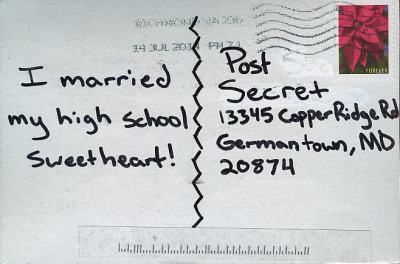 RICHMOND VA
14 JUL PM
FOREVER
I married
my high school
sweetheart!
Post
Secret
13345 Copper Ridge Rd
Germantown, MD
20874